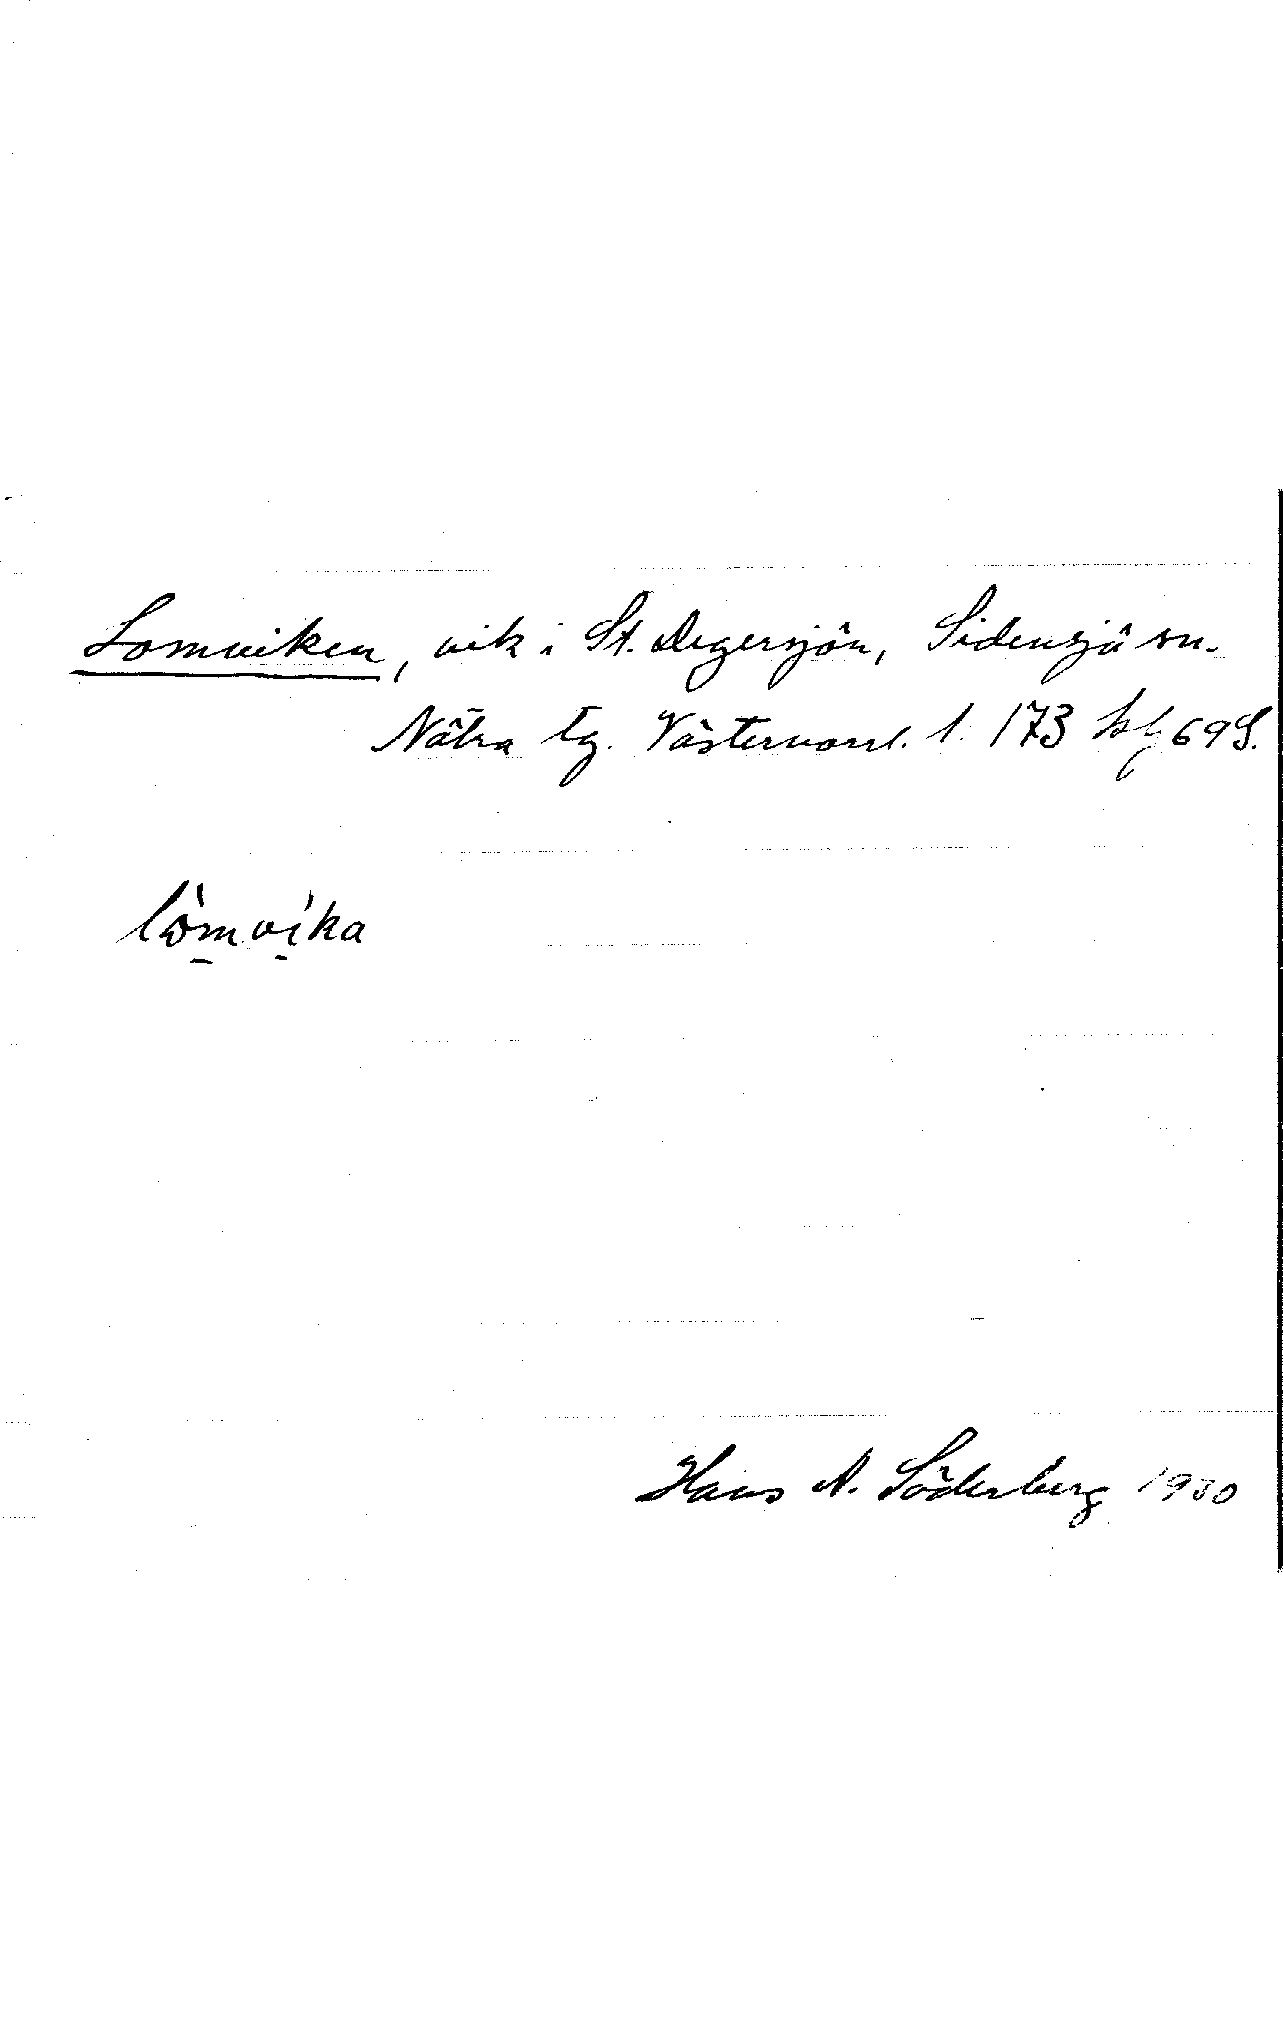 Lomviken, vik i St. Degersjön, Sidensjö sn.
Nätra tg. Västernorrl. l. 173 kbl 69 S.
lòmvika
Hans A. Söderberg 1930